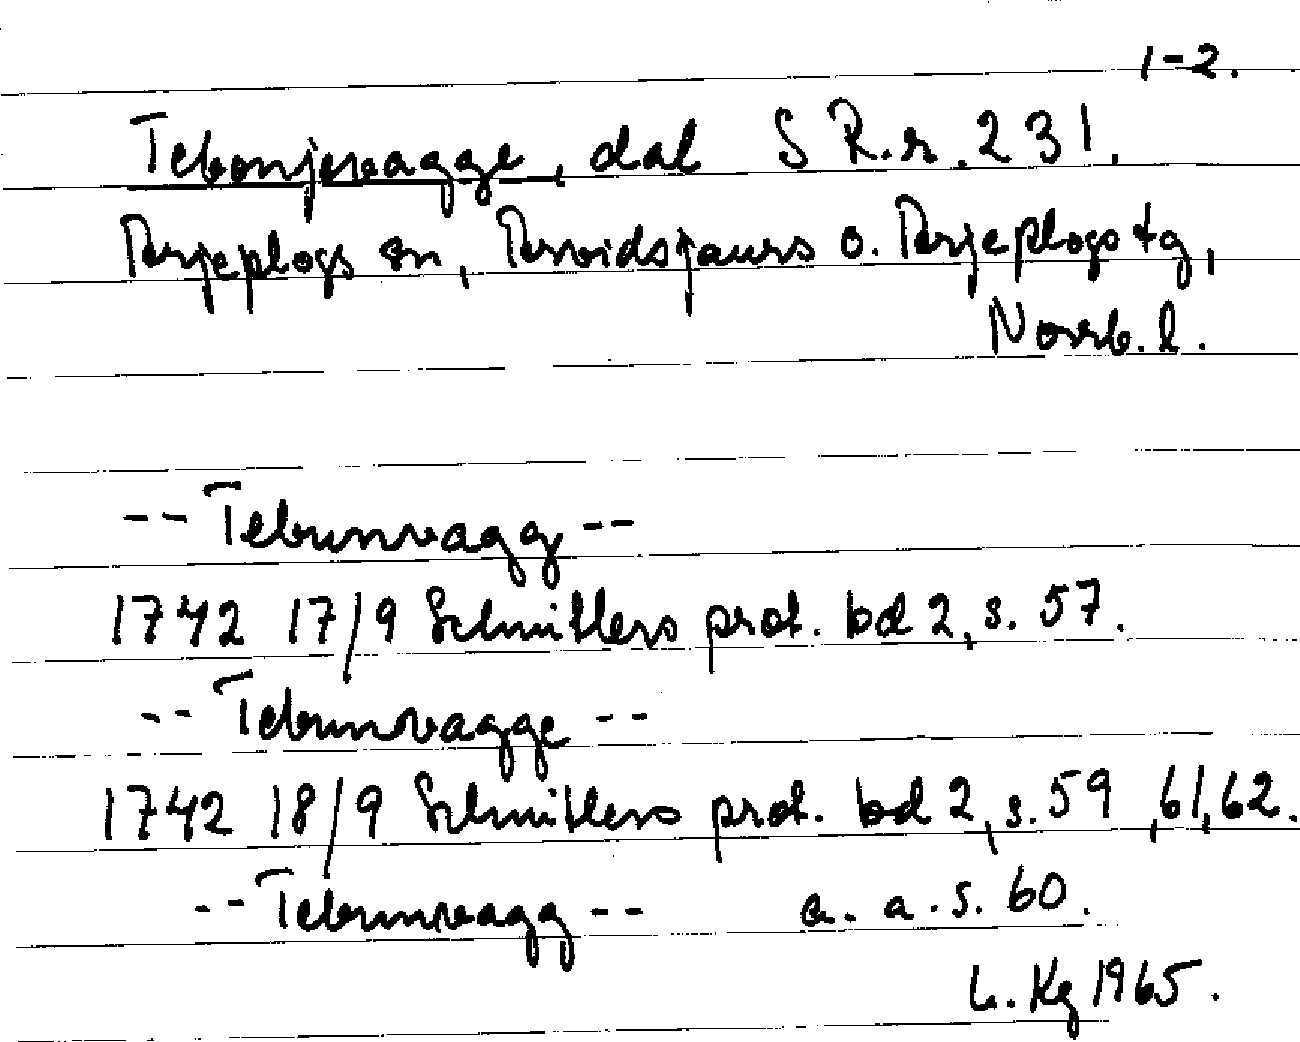 1-2.
Tebonjevagge, dal S R.r. 231.
Arjeplogs sn, Arvidsjaurs o. Arjeplogs tg,
Norrb. l.
-- Tebunvagg --
1742 17/9 Schnitlers prot. bd 2, s. 57.
-- Tebunvagge --
1742 18/9 Schnitlers prot. bd 2, s. 59, 61, 62.
-- Tebunvagg -- a. a. s. 60.
L. Kg 1965.